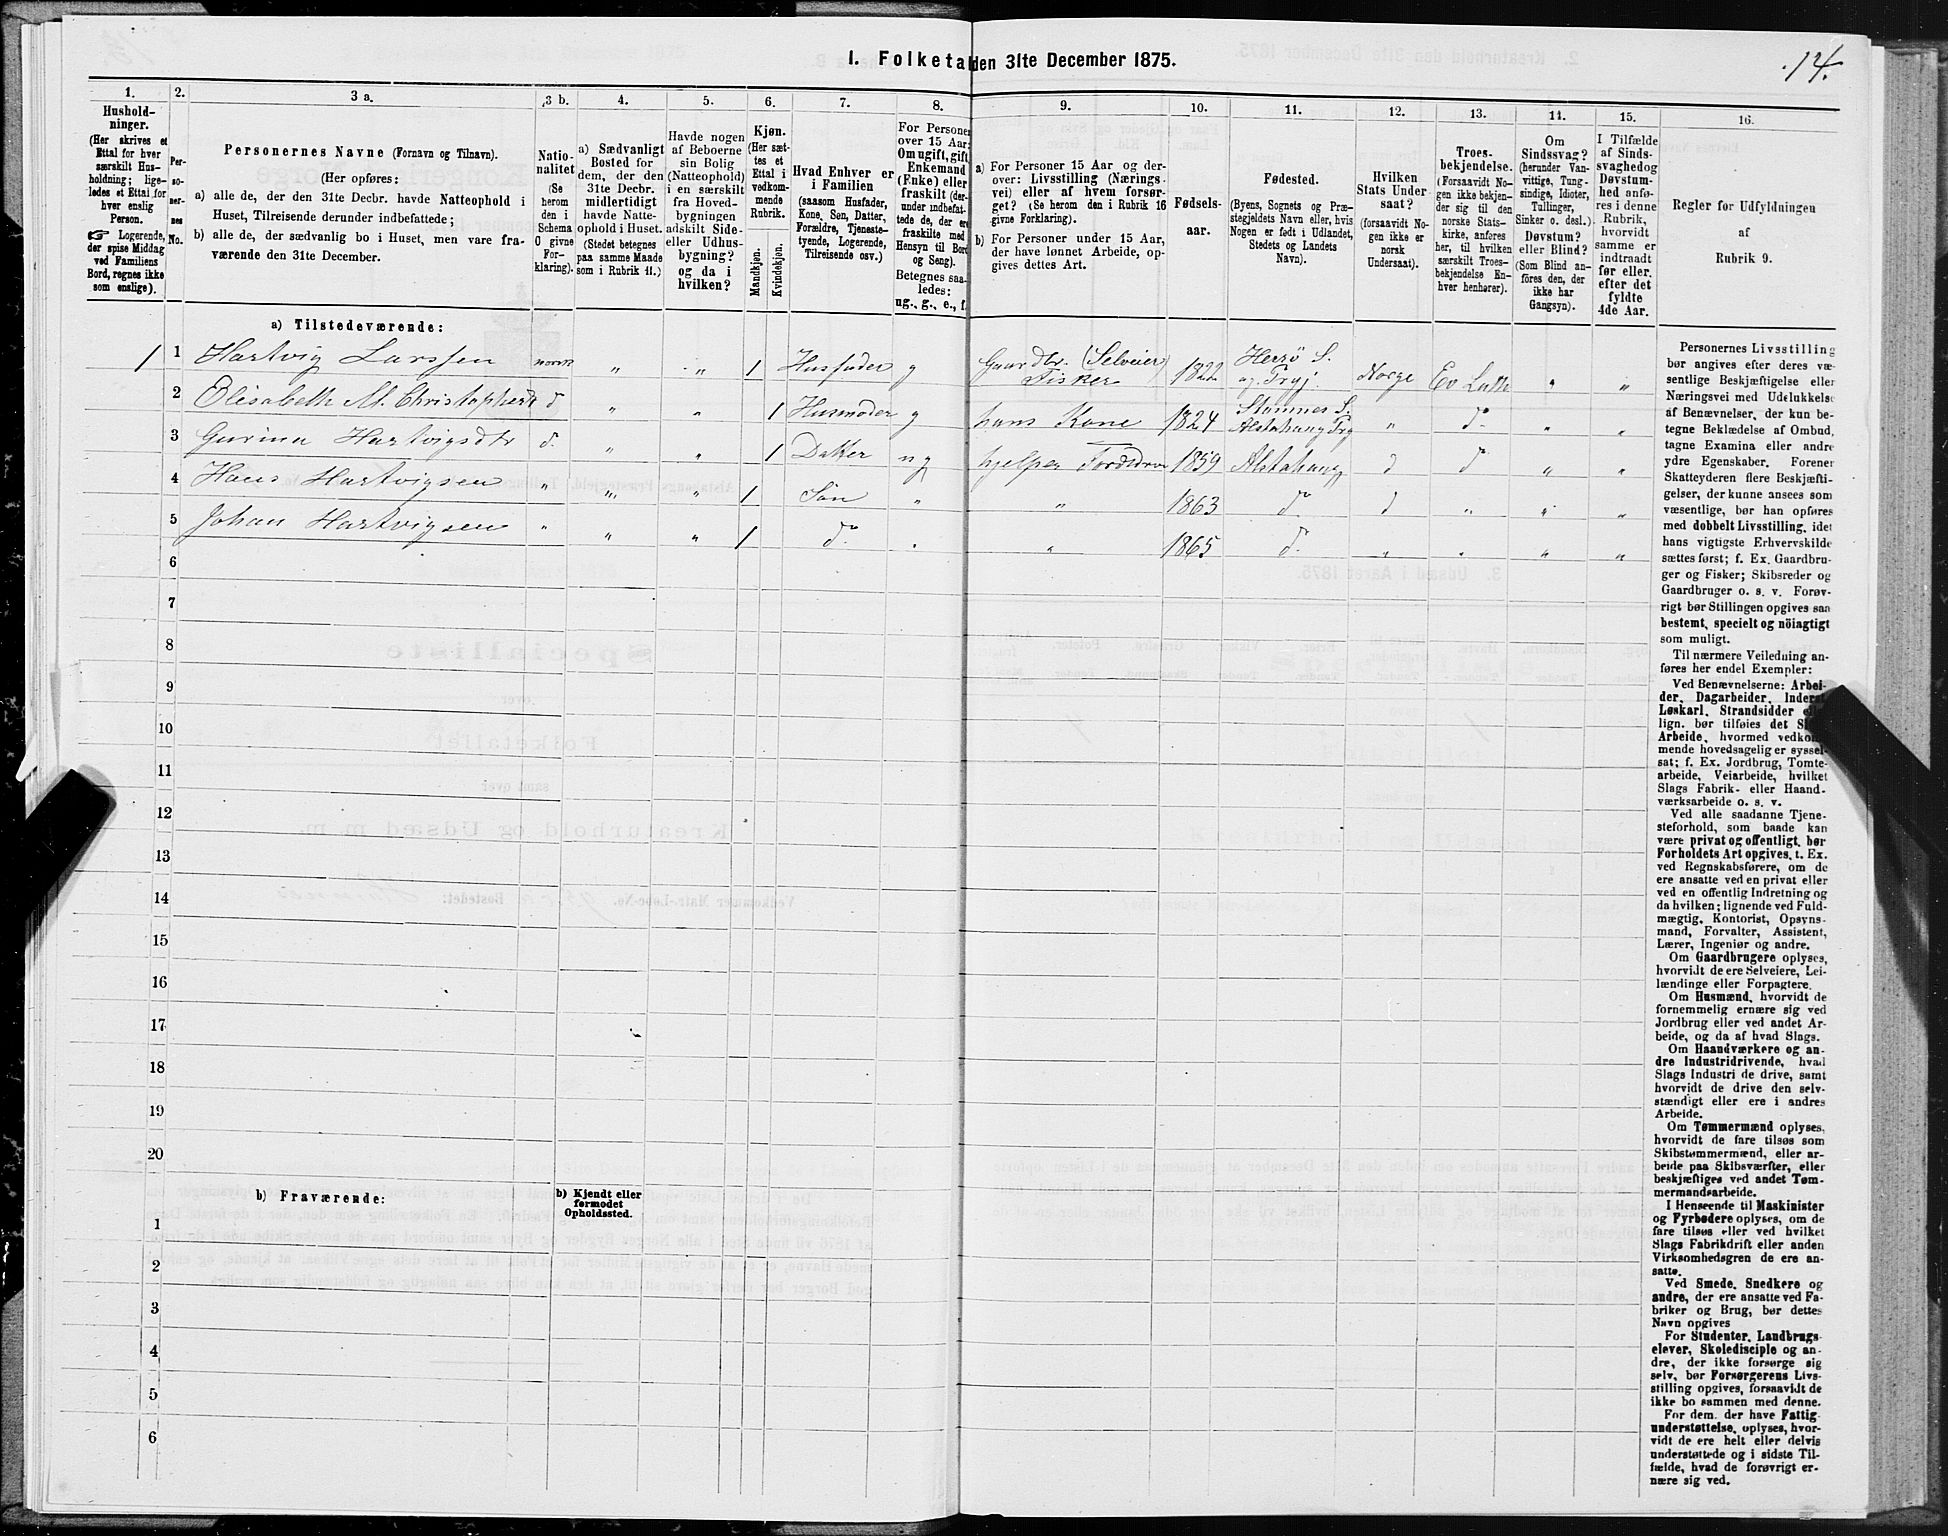 I. Folketal den 31te December 1875.
14.
1.
Hushold-
ninger.
(Her skrives et
Ettal for hver
særskilt Hus-
holdning; lige-
ledes et Ettal for
hver enslig
Person.
☞ Logerende,
der spise Middag
ved Familiens
Bord, regnes ikke
som enslige).
2.
Per-
so-
ner-
nes
No.
3 a.
Personernes Navne (Fornavn og Tilnavn).
(Her opføres:
a) alle de, der den 31te Decbr. havde Natteophold i
Huset, Tilreisende derunder indbefattede;
b) alle de, der sædvanlig bo i Huset, men vare fra-
værende den 31te December.
3 b.
Natio-
nalitet
(Se
herom
den i
Schema
O givne
For-
klaring).
4.
a) Sædvanligt
Bosted for
dem, der den
31te Decbr.
midlertidigt
havde Natte-
ophold i Huset.
(Stedet betegnes
paa samme Maade
som i Rubrik 11.)
5.
Havde nogen
af Beboerne
sin Bolig
(Natteophold)
i en særskilt
fra Hoved-
bygningen
adskilt Side-
eller Udhus-
bygning?
og da i
hvilken?
6.
Kjøn.
(Her sæt-
tes et
Ettal i
vedkom-
mende
Rubrik.
Mandkjøn.
Kvindekjøn.
7.
Hvad Enhver er
i Familien
(saasom Husfader,
Kone, Søn, Datter,
Forældre, Tjeneste-
tyende, Logerende,
Tilreisende osv.)
8.
For Personer
over 15 Aar:
Om ugift, gift,
Enkemand
(Enke) eller
fraskilt (der-
under indbefat-
tede de, der ere
fraskilte med
Hensyn til Bord
og Seng).
Betegnes saa-
ledes:
ug., g., e., f.
9.
a) For Personer 15 Aar og der-
over: Livsstilling (Nærings-
vei) eller af hvem forsør-
get? (Se herom den i Rubrik 16
givne Forklaring).
b) For Personer under 15 Aar,
der have lønnet Arbeide, op-
gives dettes Art.
10.
Fødsels-
aar.
11.
Fødested.
(Byens, Sognets og Præ-
stegjeldets Navn eller, hvis
Nogen er født i Udlandet,
Stedets og Landets
Navn).
12.
Hvilken
Stats Under-
saat?
(forsaavidt No-
gen ikke er
norsk
Undersaat).
13.
Troes-
bekjendelse.
(Forsaavidt No-
gen ikke bekjen-
der sig til den
norske Stats-
kirke, anføres
her, til hvilken
særskilt Troes-
bekjendelse En-
hver henhører).
14.
Om
Sindssvag?
(herunder Van-
vittige, Tung-
sindige, Idioter,
Tullinger,
Sinker o. desl.)
Døvstum?
eller Blind?
(Som Blind an-
føres den, der
ikke har
Gangsyn).
15.
I Tilfælde
af Sinds-
svaghed og
Døvstum-
hed anfø-
res i denne
Rubrik,
hvorvidt
samme er
indtraadt
før eller
efter det
fyldte
4de Aar.
16.
Regler for Udfyldningen
af
Rubrik 9.
a) Tilstedeværende:
1 1 Hartvig Larssen norsk " " 1 Husfader g Gaardbr. (Selveier) Fisker 1822 Herrø S. og Prgj. Norge Ev Luth " "
2 Elisabeth M. Christophers d " " 1 Husmoder g hans Kone 1824 Stamnes S. Alstahaug Prg " do " "
3 Gurina Hartvigsdtr d. " " 1 Datter ug hjelper 1859 Alstahaug d do " "
4 Hans Hartvigsen " " " 1 Søn " " 1863 do d " " "
5 Johan Hartvigsen " " " 1 do " " 1865 do " " " "
6
7
8
9
10
11
12
13
14
15
16
17
18
19
20
b) Fraværende:
b) Kjendt eller
formodet
Opholdssted.
1
2
3
4
5
6
Personernes Livsstilling
bør angives efter deres væ-
sentlige Beskjæftigelse eller
Næringsvei med Udelukkelse
af Benævnelser, der kun be-
tegne Beklædelse af Ombud,
tagne Examina eller andre
ydre Egenskaber. Forener
Skatteyderen flere Beskjæfti-
gelser, der kunne ansees som
væsentlige, bør han opføres
med dobbelt Livsstilling, idet
hans vigtigste Erhvervskilde
sættes først; f. Ex. Gaardbru-
ger og Fisker; Skibsreder og
Gaardbruger o. s. v. Forøv-
rigt bør Stillingen opgives saa
bestemt, specielt og nöiagtigt
som muligt.
Til nærmere Veiledning an-
føres her endel Exempler:
Ved Benævnelserne: Arbei-
der, Dagarbeider, Inderst,
Løskarl, Strandsidder eller
lign. bør tilføies det Slags
Arbeide, hvormed vedkom-
mende hovedsagelig er syssel-
sat; f. Ex. Jordbrug, Tomte-
arbeide, Veiarbeide, hvilket
Slags Fabrik- eller Haand-
værksarbeide o. s. v.
Ved alle saadanne Tjene-
steforhold, som baade kan
være privat og offentligt, bør
Forholdets Art opgives, t. Ex.
ved Regnskabsførere, om de
ere ansatte ved en privat eller
ved en offentlig Indretning og
da hvilken; lignende ved Fuld-
mægtig, Kontorist, Opsyns-
mand, Forvalter, Assistent,
Lærer, Ingeniør og andre.
Om Gaardbrugere oplyses,
hvorvidt de ere Selveiere, Lei-
lændinge eller Forpagtere.
Om Husmænd, hvorvidt de
fornemmelig ernære sig ved
Jordbrug eller ved andet Ar-
beide, og da af hvad Slags.
Om Haandværkere og an-
dre Industridrivende, hvad
Slags Industri de drive, samt
hvorvidt de drive den selv-
stændigt eller ere i andres
Arbeide.
Om Tømmermænd oplyses,
hvorvidt de fare tilsøs som
Skibstømmermænd, eller ar-
beide paa Skibsværfter, eller
beskjæftiges ved andet Tøm-
mermandsarbeide.
I Henseende til Maskinister
og Fyrbødere oplyses, om de
fare tilsøs eller ved hvilket
Slags Fabrikdrift eller anden
Virksomhedsgren de ere an-
satte.
Ved Smede, Snedkere og
andre, der ere ansatte ved Fa-
briker og Brug, bør dettes
Navn opgives
For Studenter, Landbrugs-
elever, Skoledisciple og an-
dre, der ikke forsørge sig
selv, bør Forsørgerens Livs-
stilling opgives, forsaavidt de
ikke bo sammen med denne.
For dem, der have Fattig-
understøttelse, oplyses, hvor-
vidt de ere helt eller delvis
understøttede og i sidste Til-
fælde, hvad de forøvrigt er-
nære sig ved.